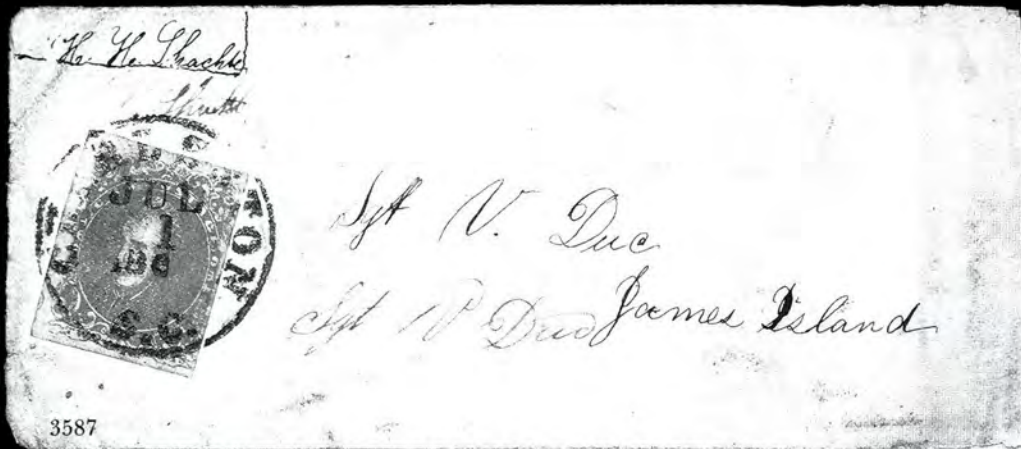 H. H. Shachte
CHARLESTON
JUL
1
186
S.C.
Sgt V. Duc
Sgt V Duc
James Island
3587